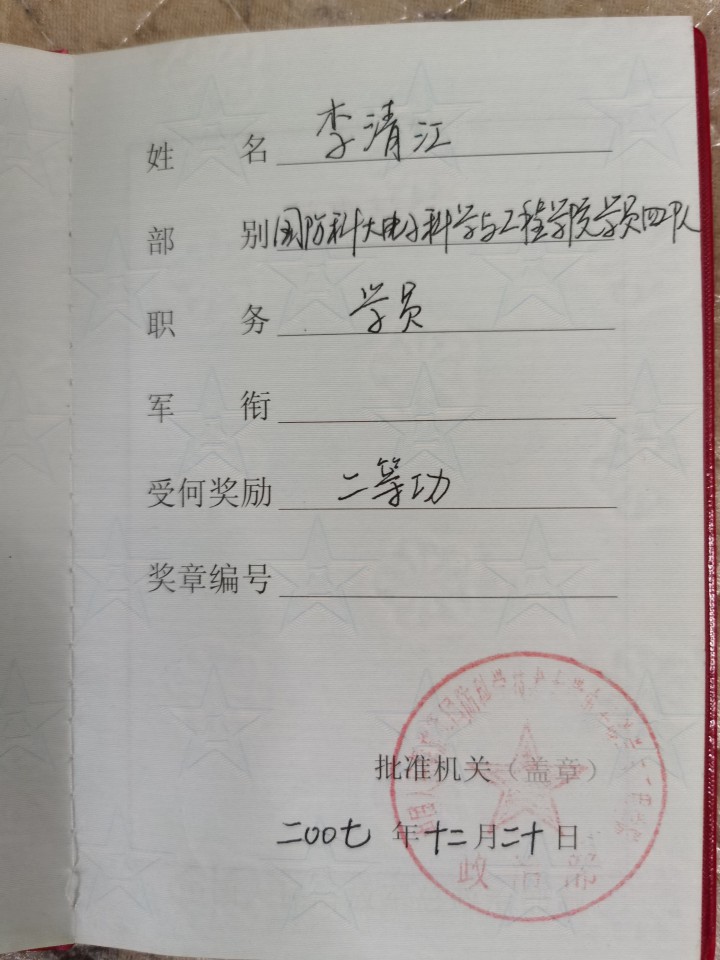 姓 名 李清江
部 别 国防科大电子科学与工程学院学员四队
职 务 学员
军 衔
受何奖励 二等功
奖章编号
批准机关（盖章）
二00七 年 十二 月 二十 日
政治部